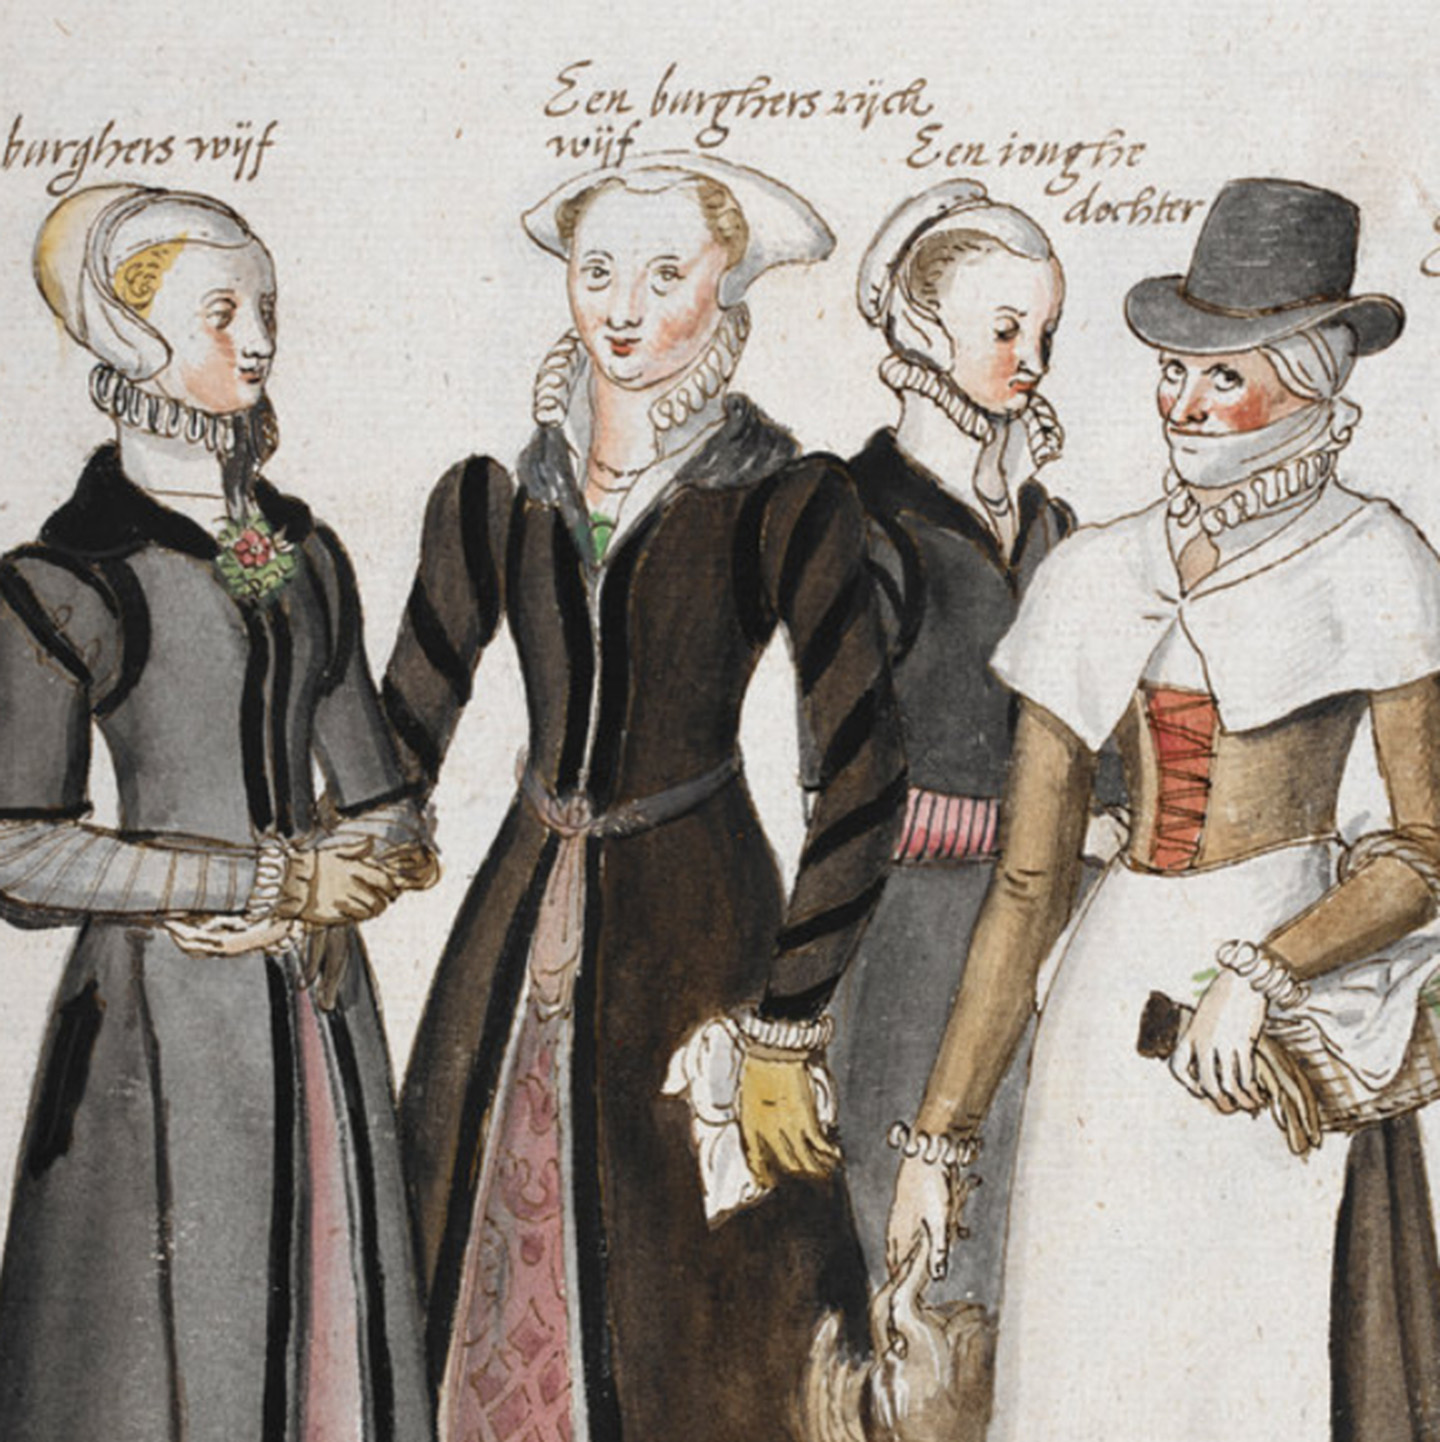 burghers wijf
Een burghers rijck
wijf
Een ionghe
dochter